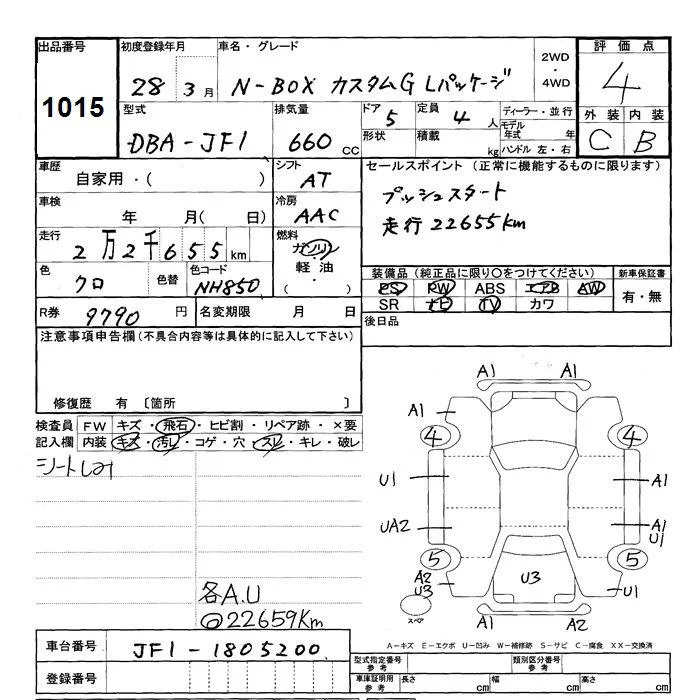 出品番号 初度登録年月 車名・グレード 2WD・4WD 評価点
1015 28 3月 N-BOX カスタムG Lパッケージ 4
型式 排気量 ドア 5 定員 4人 ディーラー・並行 外装 内装
DBA-JF1 660cc 形状 積載 kg モデル年式 年 C B
ハンドル 左・右
車歴 シフト セールスポイント (正常に機能するものに限ります)
自家用・( ) AT プッシュスタート
車検 冷房 走行 22655km
年 月( 日) AAC
走行 燃料
2万2千655km ガソリン・軽油・( )
色 色替 色コード 装備品 (純正品に限り○をつけてください) 新車保証書
クロ NH850 PS PW ABS エアB AW 有・無
SR ナビ TV カワ
R券 9790円 名変期限 月 日 後日品
注意事項申告欄(不具合内容等は具体的に記入して下さい)
修復歴 有 〔箇所
検査員 FW キズ・飛石・ヒビ割・リペア跡・×要
記入欄 内装 キズ・汚レ・コゲ・穴・スレ・キレ・破レ
A1 A1
A1 4 4
U1 A1
UA2 A1 U1
5 5
A2 U3 U3 U1
スペア A1 A2
各A.U
@22659Km
A-キズ E-エクボ U-凹み W-補修跡 S-サビ C-腐食 XX-交換済
車台番号 JF1-1805200
登録番号
型式指定番号 参考 類別区分番号 参考
車庫証明用 参考 長さ cm 幅 cm 高さ cm